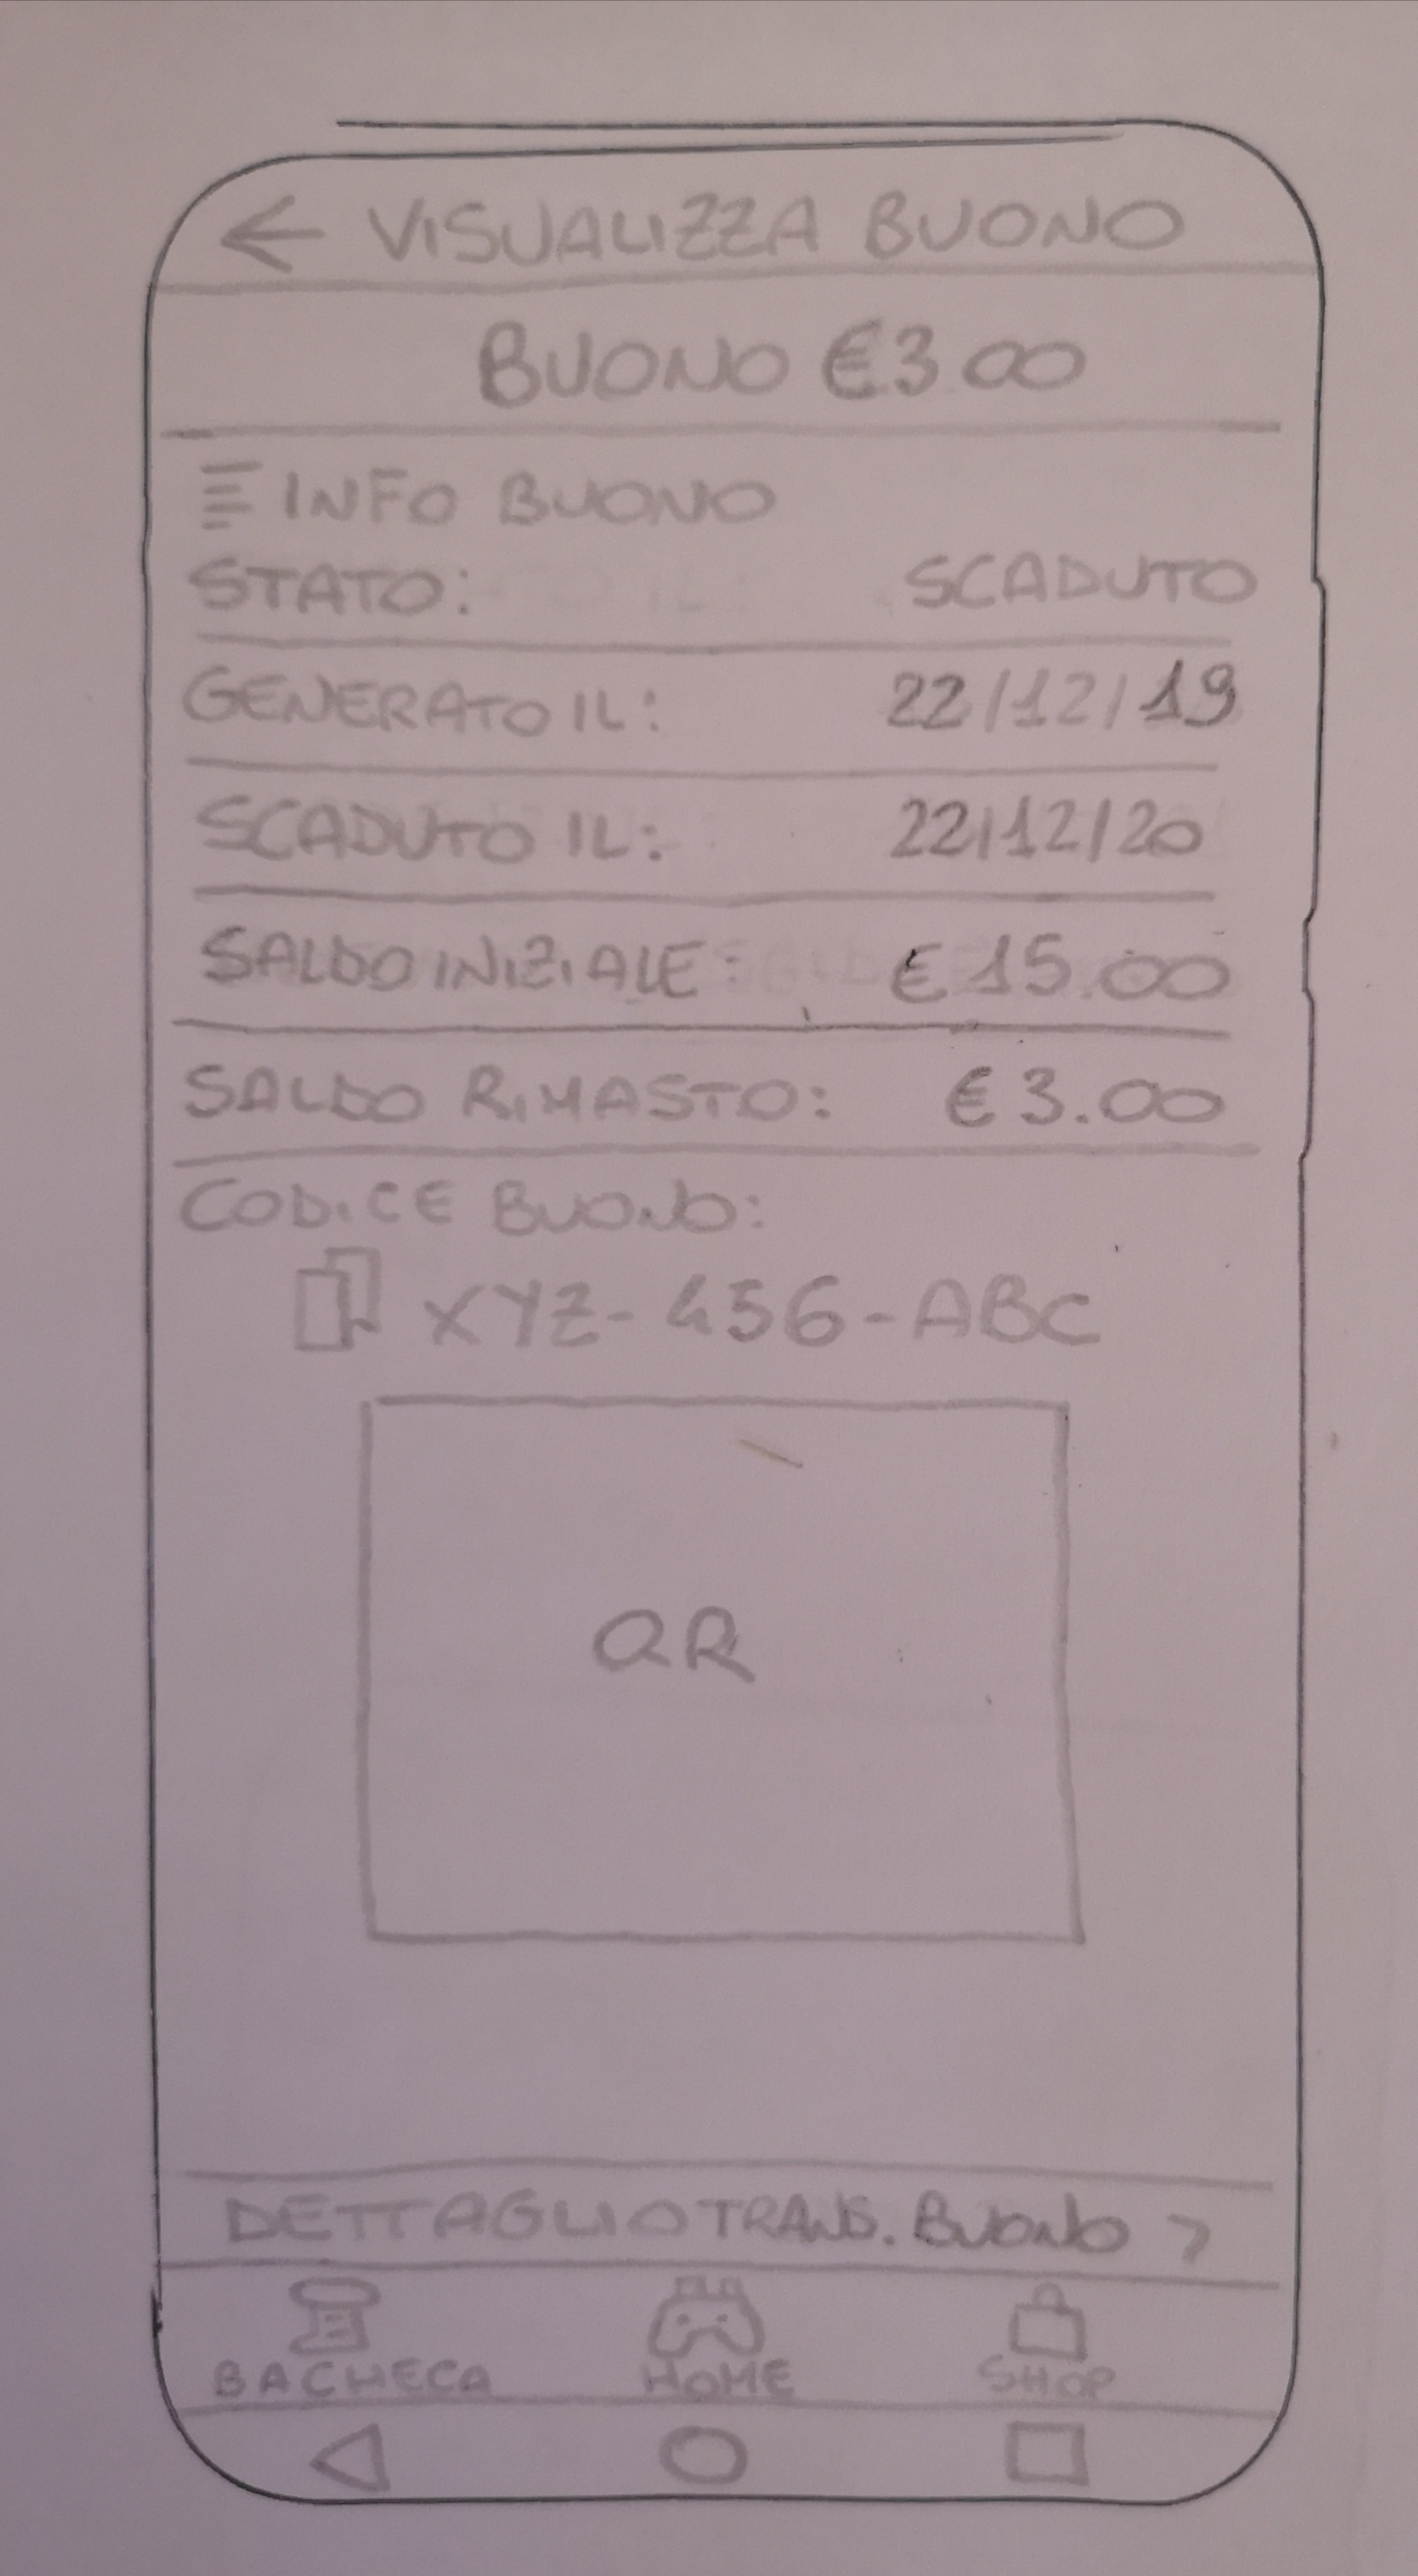 ← VISUALIZZA BUONO
BUONO €3.00
INFO BUONO
STATO: SCADUTO
GENERATO IL: 22/12/19
SCADUTO IL: 22/12/20
SALDO INIZIALE: € 15.00
SALDO RIMASTO: € 3.00
CODICE BUONO:
XYZ-456-ABC
QR
DETTAGLIO TRANS. BUONO >
BACHECA HOME SHOP